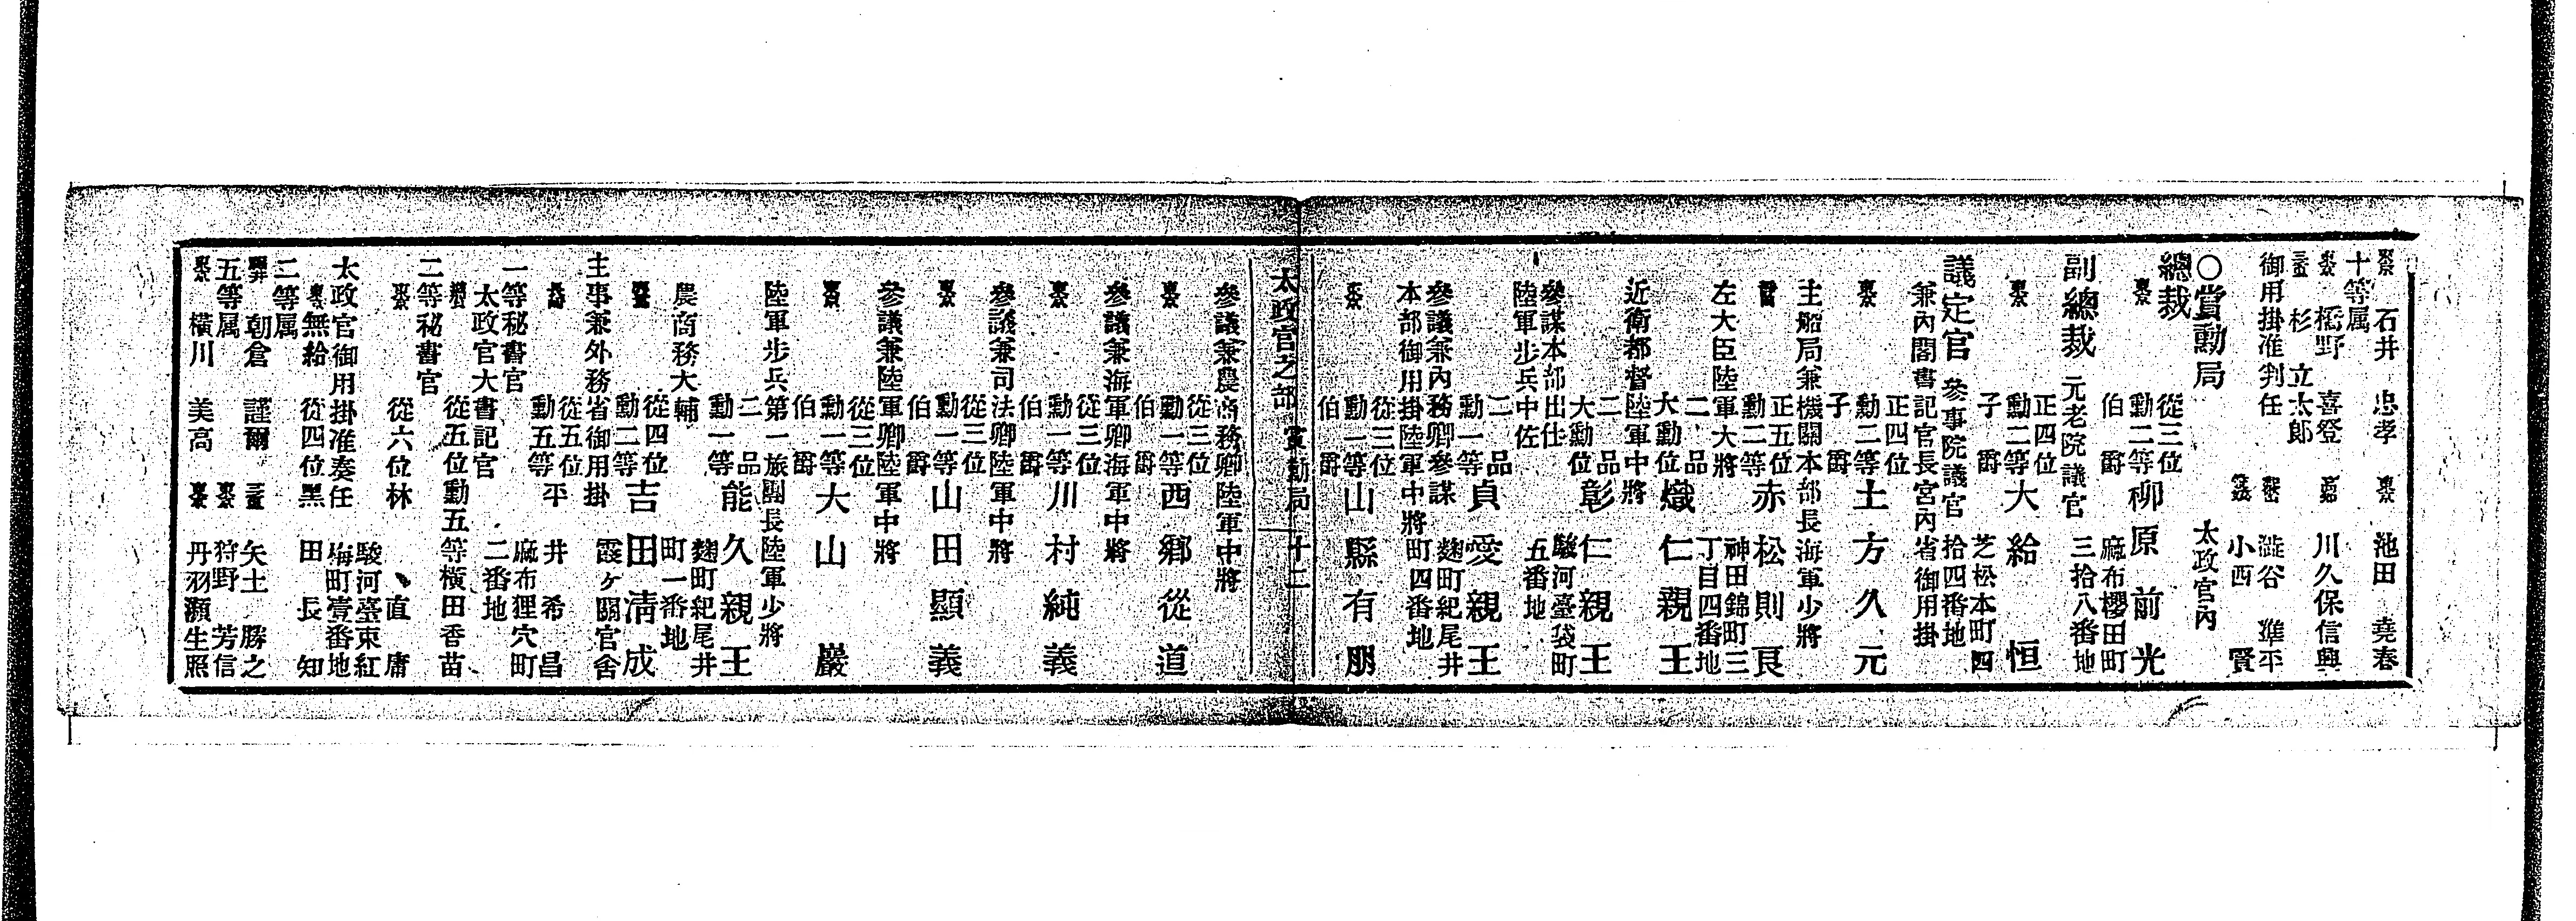 東京 石井 忠孝 東京 池田 堯春
十等属
東京 橘野 喜登 川久保信興
三重 杉 立太郎
御用掛准判任 澁谷 準平
小西 賢
○賞勳局 太政官內
總裁
東京 從三位 勳二等 伯爵 柳原前光
麻布櫻田町 三拾八番地
副總裁 元老院議官
東京 正四位 勳二等 子爵 大給恒
芝松本町四 拾四番地
議定官 參事院議官
兼內閣書記官長宮內省御用掛
東京 正四位 勳二等 子爵 土方久元
主船局兼機關本部長海軍少將
靜岡 正五位 勳二等 赤松則良
神田錦町三 丁目四番地
左大臣陸軍大將
二品 大勳位 熾仁親王
近衛都督陸軍中將
二品 大勳位 彰仁親王
駿河臺袋町 五番地
參謀本部出仕
陸軍步兵中佐
二品 勳一等 貞愛親王
麴町紀尾井 町四番地
參議兼內務卿參謀
本部御用掛陸軍中將
東京 從三位 勳一等 伯爵 山縣有朋
太政官之部 賞勳局 十二
參議兼農商務卿陸軍中將
東京 從三位 勳一等 伯爵 西鄉從道
參議兼海軍卿海軍中將
東京 從三位 勳一等 伯爵 川村純義
參議兼司法卿陸軍中將
東京 從三位 勳一等 伯爵 山田顯義
參議兼陸軍卿陸軍中將
東京 從三位 勳一等 伯爵 大山巖
陸軍步兵第一旅團長陸軍少將
二品 勳一等 能久親王
麴町紀尾井 町一番地
農商務大輔
從四位 勳二等 吉田淸成
霞ヶ關官舍
主事兼外務省御用掛
長崎 從五位 勳五等 平井希昌
麻布狸穴町 二番地
一等秘書官
太政官大書記官
從五位勳五等橫田香苗
二等秘書官
東京 從六位林 直庸
駿河臺東紅 梅町壹番地
太政官御用掛准奏任
東京 無給 從四位黑田長知
二等属
福井 朝倉 謹爾 三重 矢土 勝之
五等属 東京 狩野 芳信
東京 橫川 美高 東京 丹羽瀨生照